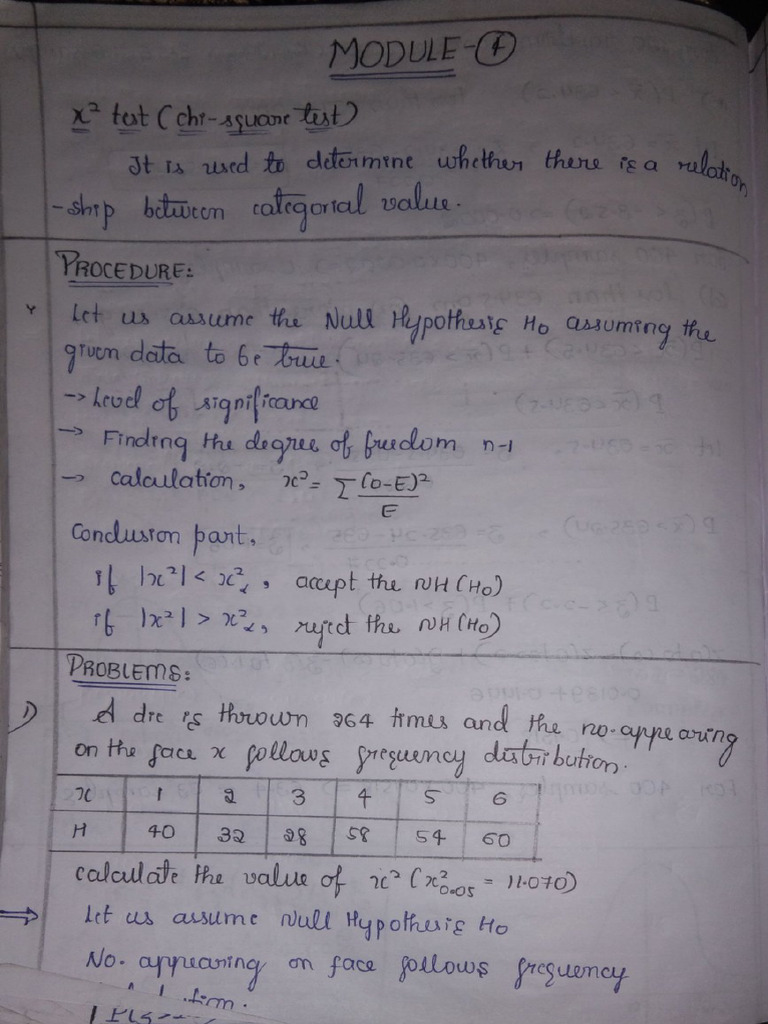 MODULE-4
x² test (chi-square test)
It is used to determine whether there is a relation
-ship between categorial value.
PROCEDURE:
Let us assume the Null Hypothesis H₀ assuming the
given data to be true.
→ Level of significance
→ Finding the degree of freedom n-1
→ calculation, x² = Σ (O-E)²/E
Conclusion part,
if |x²| < x²α, accept the NH (H₀)
if |x²| > x²α, reject the NH (H₀)
PROBLEMS:
1) A die is thrown 264 times and the no. appearing
on the face x follows frequency distribution.
x 1 2 3 4 5 6
H 40 32 28 58 54 60
calculate the value of x² (x²0.05 = 11.070)
⇒ Let us assume Null Hypothesis H₀
No. appearing on face follows frequency